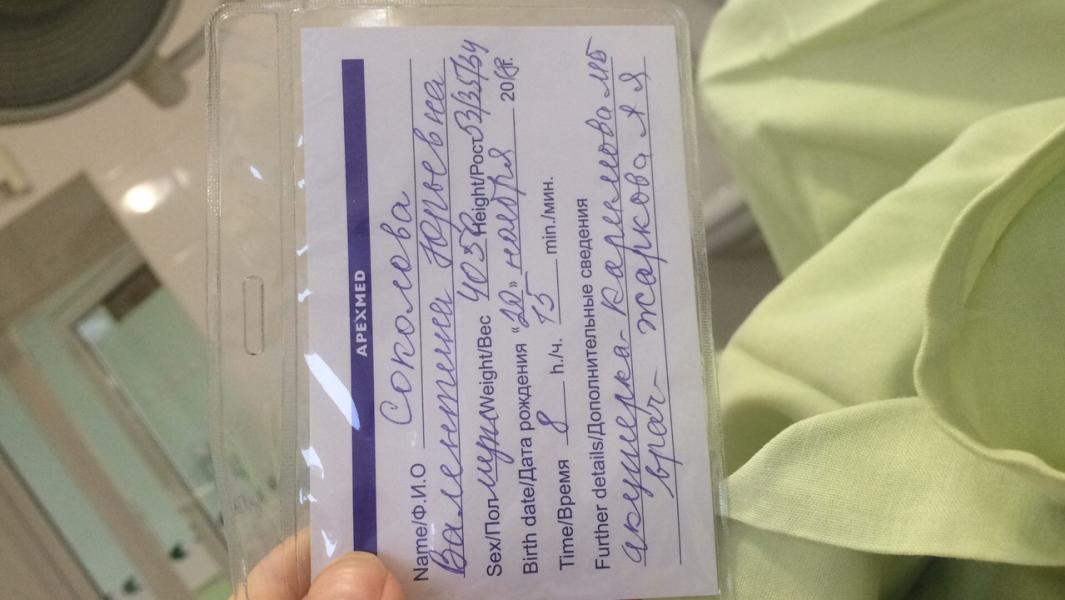 APEXMED
Name/Ф.И.О Соколова
Валентина Юрьевна
Sex/Пол муж Weight/Вес 4030г Height/Рост 53/35/34
Birth date/Дата рождения "20" ноября 20 г.
Time/Время 8 h./ч. 15 min./мин.
Further details/Дополнительные сведения
акушерка - Каримова МБ
врач - Жаркова Л Я